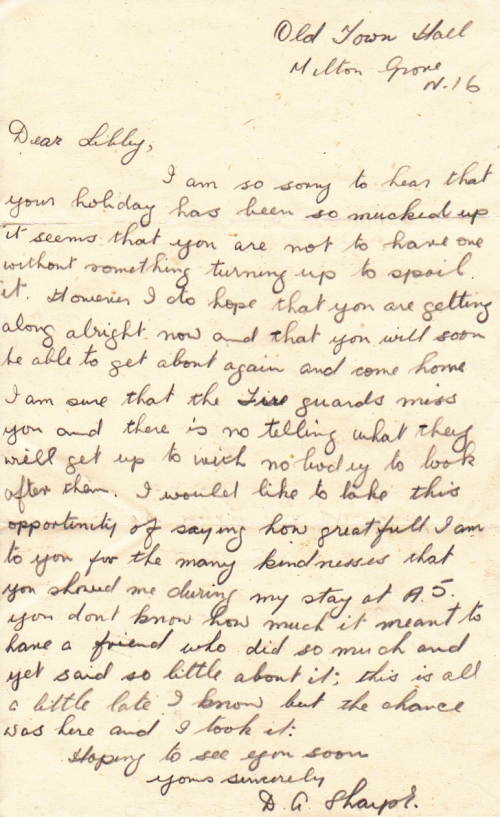 Old Town Hall
Milton Grove
N.16
Dear Libby,
I am so sorry to hear that
your holiday has been so mucked up
it seems that you are not to have one
without something turning up to spoil
it. However I do hope that you are getting
along alright now and that you will soon
be able to get about again and come home
I am sure that the Fire guards miss
you and there is no telling what they
will get up to with no body to look
after them. I would like to take this
opportunity of saying how greatfull I am
to you for the many kindnesses that
you showed me during my stay at A.5.
you dont know how much it meant to
have a friend who did so much and
yet said so little about it; this is all
a little late I know but the chance
was here and I took it:
Hoping to see you soon
yours sincerely
D. A. Sharpe.